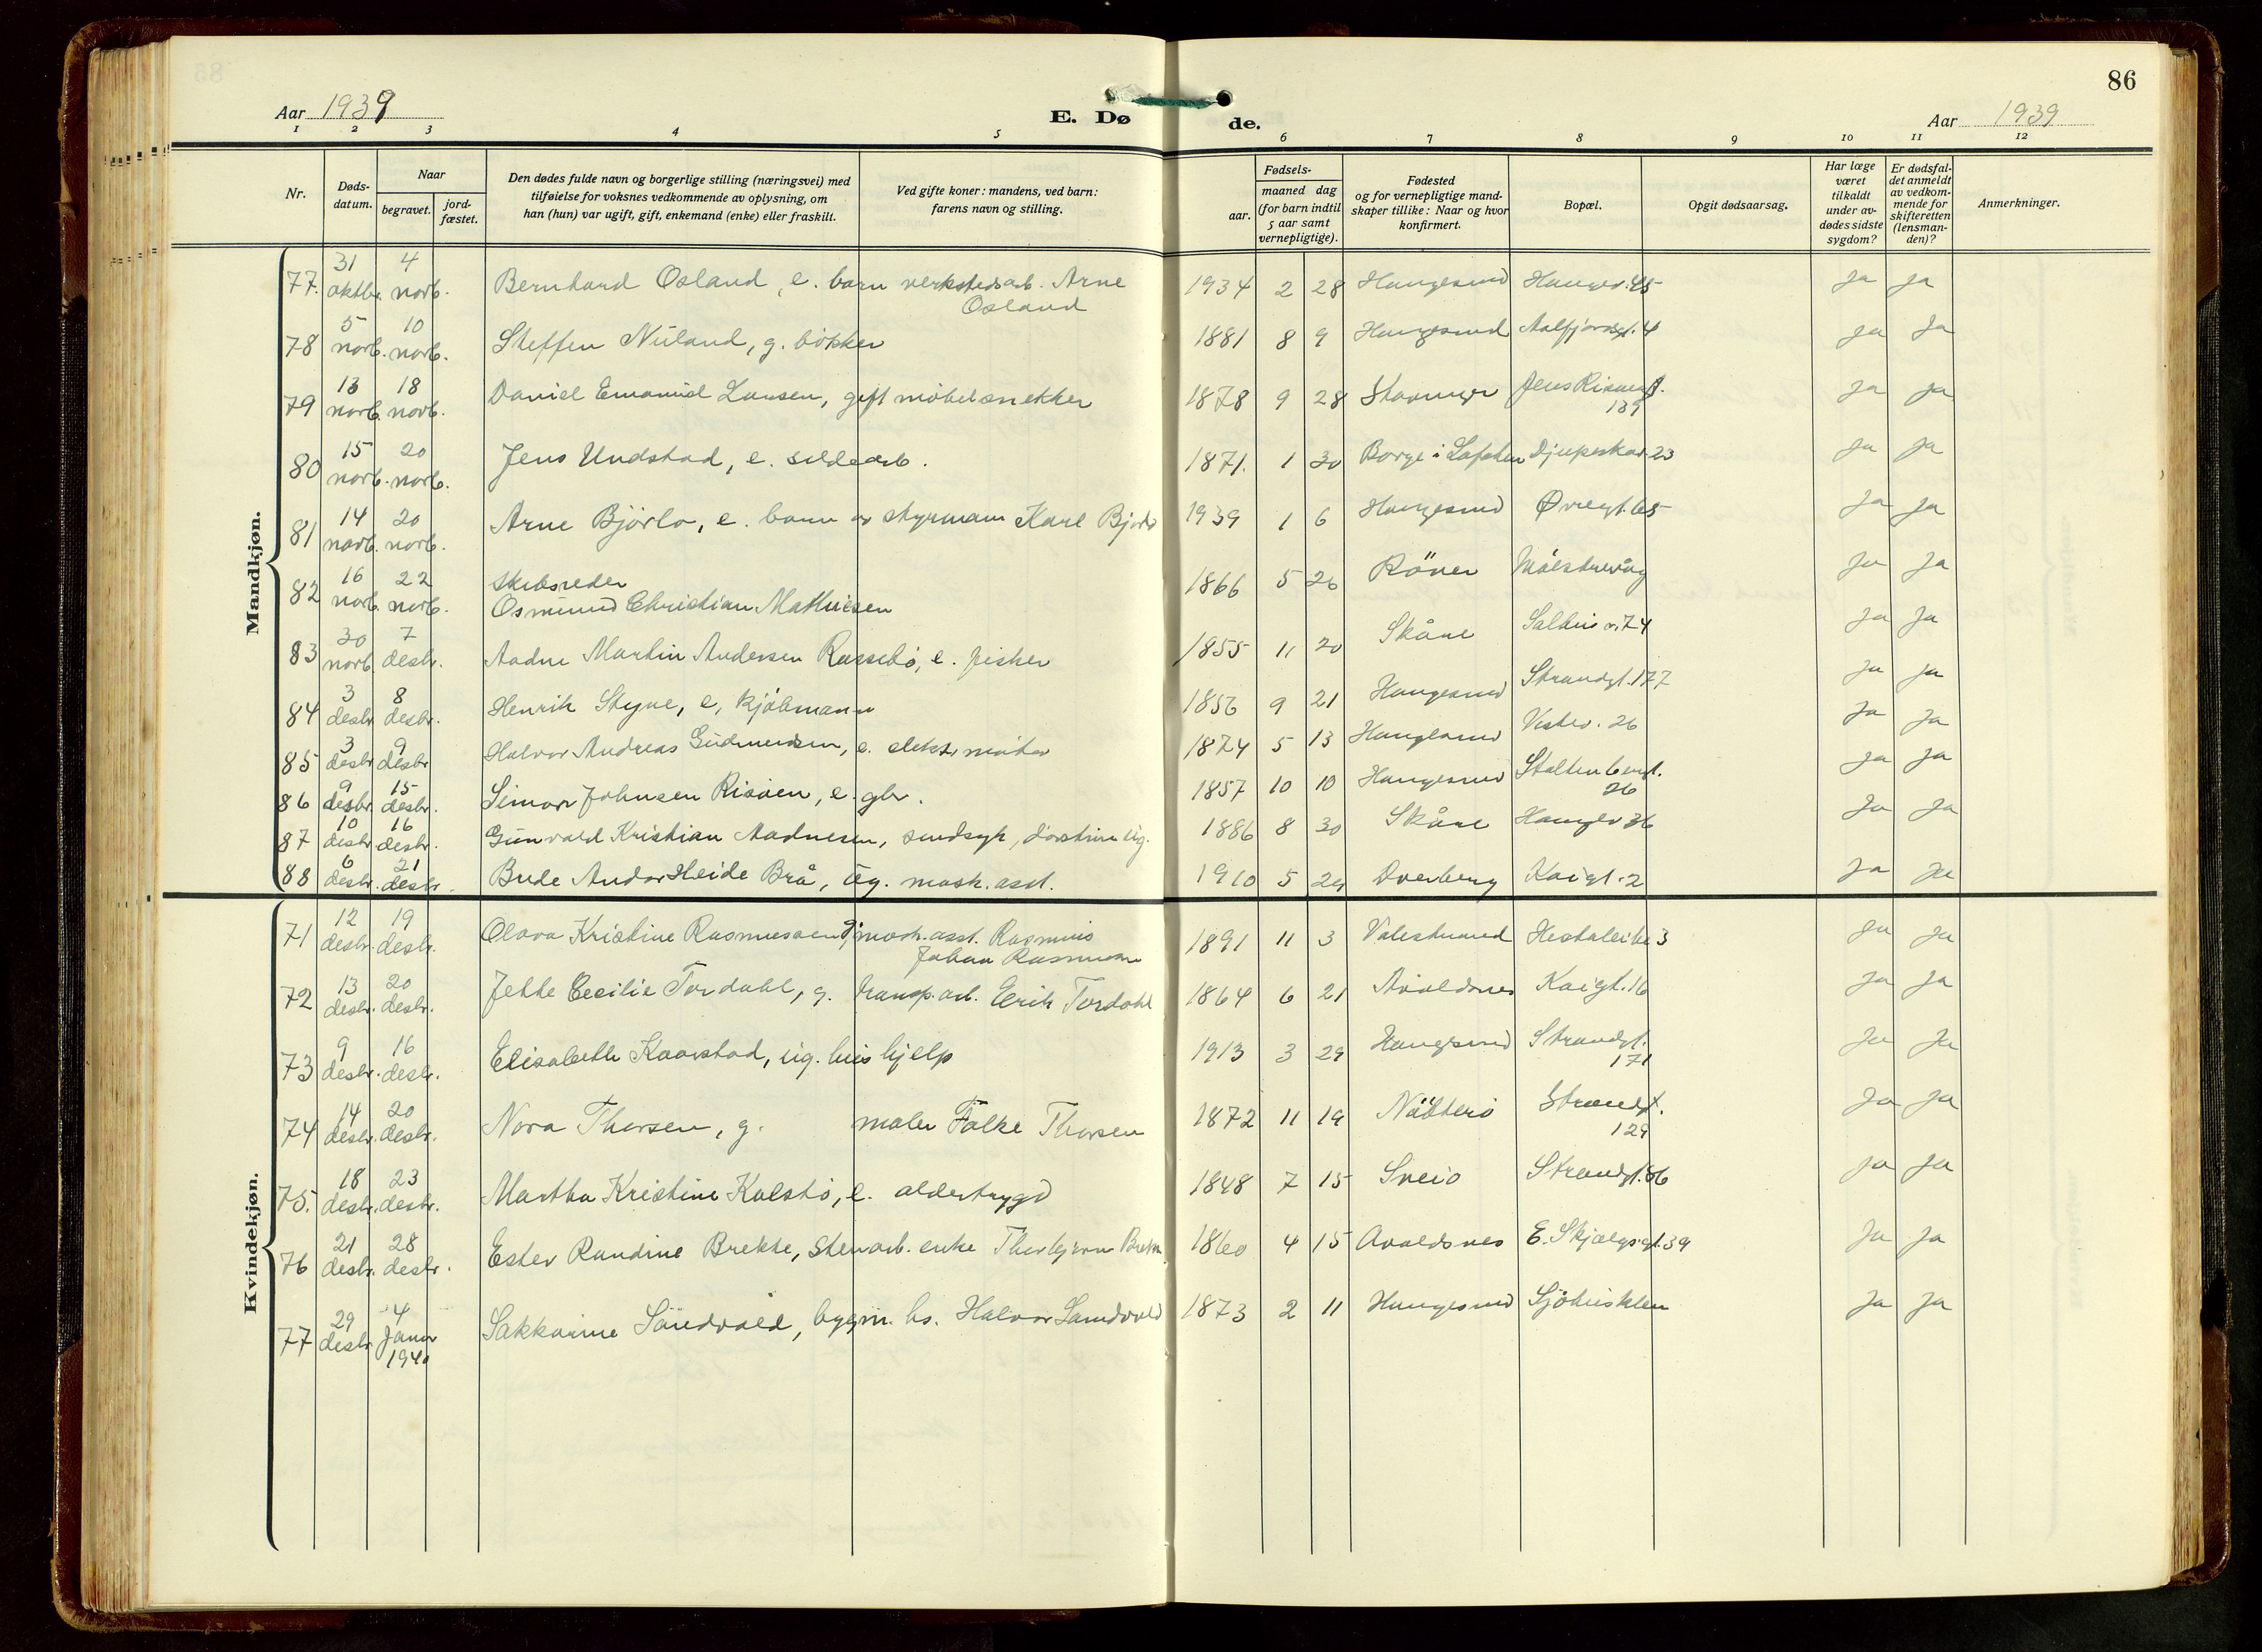 86
Aar 1939
E. Dø
de.
Aar 1939
1 2 3 4 5 6 7 8 9 10 11 12
Nr.
Døds-
datum.
Naar
begravet.
jord-
fæstet.
Den dødes fulde navn og borgerlige stilling (næringsvei) med
tilføielse for voksnes vedkommende av oplysning, om
han (hun) var ugift, gift, enkemand (enke) eller fraskilt.
Ved gifte koner: mandens, ved barn:
farens navn og stilling.
Fødsels-
aar.
maaned dag
(for barn indtil
5 aar samt
vernepligtige).
Fødested
og for vernepligtige mand-
skaper tillike: Naar og hvor
konfirmert.
Bopæl.
Opgit dødsaarsag.
Har læge
været
tilkaldt
under av-
dødes sidste
sygdom?
Er dødsfal-
det anmeldt
av vedkom-
mende for
skifteretten
(lensman-
den)?
Anmerkninger.
Mandkjøn.
77. 31 oktbr. 4 novb. Bernhard Osland, e. barn verkstedsarb. Arne Osland 1934 2 28 Haugesund Haugev. 45 Ja Ja
78 5 novb. 10 novb. Steffen Nuland, g. bökker 1881 8 9 Haugesund Aalfjordgt. 4 Ja Ja
79 13 novb. 18 novb. Daniel Emanuel Larsen, gift möbelsnekker 1878 9 28 Stavanger Jens Risøengt. 139 Ja Ja
80 15 novb. 20 novb. Jens Undstad, e. sildearb. 1871. 1 30 Borge i Lofoten Djupeskar 23 Ja Ja
81 14 novb. 20 novb. Arne Bjørlo, e. barn av styrmann Karl Bjørlo 1939 1 6 Haugesund Øvregt. 65 Ja Ja
82 16 novb. 22 novb. Skibsreder Osmund Christian Mathiesen 1866 5 26 Röver Målstrevåg Ja Ja
83 30 novb. 7 desbr. Aadne Martin Andersen Rossebö, e. fisker 1855 11 20 Skåre Salhusv. 74 Ja Ja
84 3 desbr. 8 desbr. Henrik Styve, e, kjöbmann 1856 9 21 Haugesund Strandgt. 177 Ja Ja
85 3 desbr. 9 desbr. Halvor Andreas Gudmundsen, e. elektr. montør 1874 5 13 Haugesund Vestev. 26 Ja Ja
86 9 desbr. 15 desbr. Simon Johnsen Risöen, e. gbr. 1857 10 10 Haugesund Stoltenbergt. 26 Ja Ja
87 10 desbr. 16 desbr. Gunvald Kristian Aadnesen, sindsyk, ug. 1886 8 30 Skåre Haugev 36 Ja Ja
88 6 desbr. 21 desbr. Brede Andor Heide Brå, ug. mask. asst. 1910 5 29 Dverberg Kaigt. 2 Ja Ja
Kvindekjøn.
71 12 desbr. 19 desbr. Olava Kristine Rasmussen g. mask. asst. Rasmus Johan Rasmussen 1891 11 3 Valestrand Hestaleite 3 Ja Ja
72 13 desbr. 20 desbr. Jette Cecilie Tordahl, g. transp. arb. Erik Tordahl 1864 6 21 Avaldsnes Kaigt. 16 Ja Ja
73 9 desbr. 16 desbr. Elisabeth Kaarstad, ug. hushjelp 1913 3 29 Haugesund Strandgt. 171 Ja Ja
74 14 desbr. 20 desbr. Nora Thorsen, g. maler Falke Thorsen 1872 11 19 Nötterö Strandgt. 129 Ja Ja
75. 18 desbr. 23 desbr. Martha Kristine Kalstö, e. alderstrygd 1848 7 15 Sveio Strandgt. 86 Ja Ja
76 21 desbr. 28 desbr. Ester Randine Brekke, stenarb. enke Thorbjörn Brekke 1860 4 15 Avaldsnes E. Skjalgsgt. 39 Ja Ja
77 29 desbr 4 Januar 1940 Sakkarine Sandvold, bygm. hs. Halvor Sandvold 1873 2 11 Haugesund Sjöhusklen Ja Ja